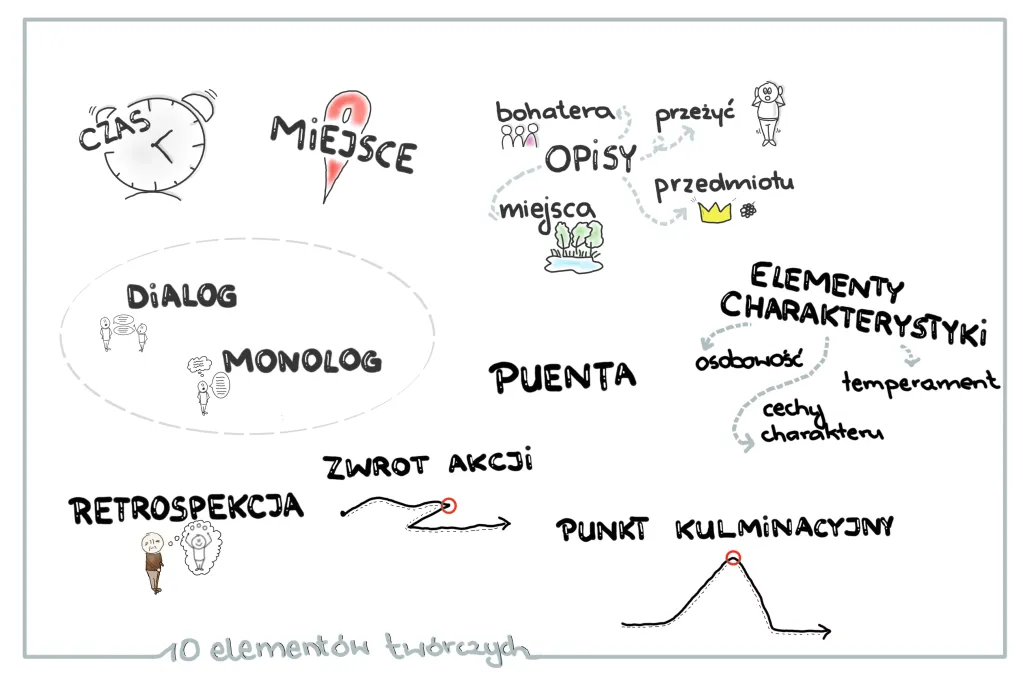 CZAS
MIEJSCE
bohatera
przeżyć
OPISY
przedmiotu
miejsca
DIALOG
MONOLOG
ELEMENTY
CHARAKTERYSTYKI
osobowość
temperament
cechy
charakteru
PUENTA
ZWROT AKCJI
RETROSPEKCJA
PUNKT KULMINACYJNY
10 elementów twórczych